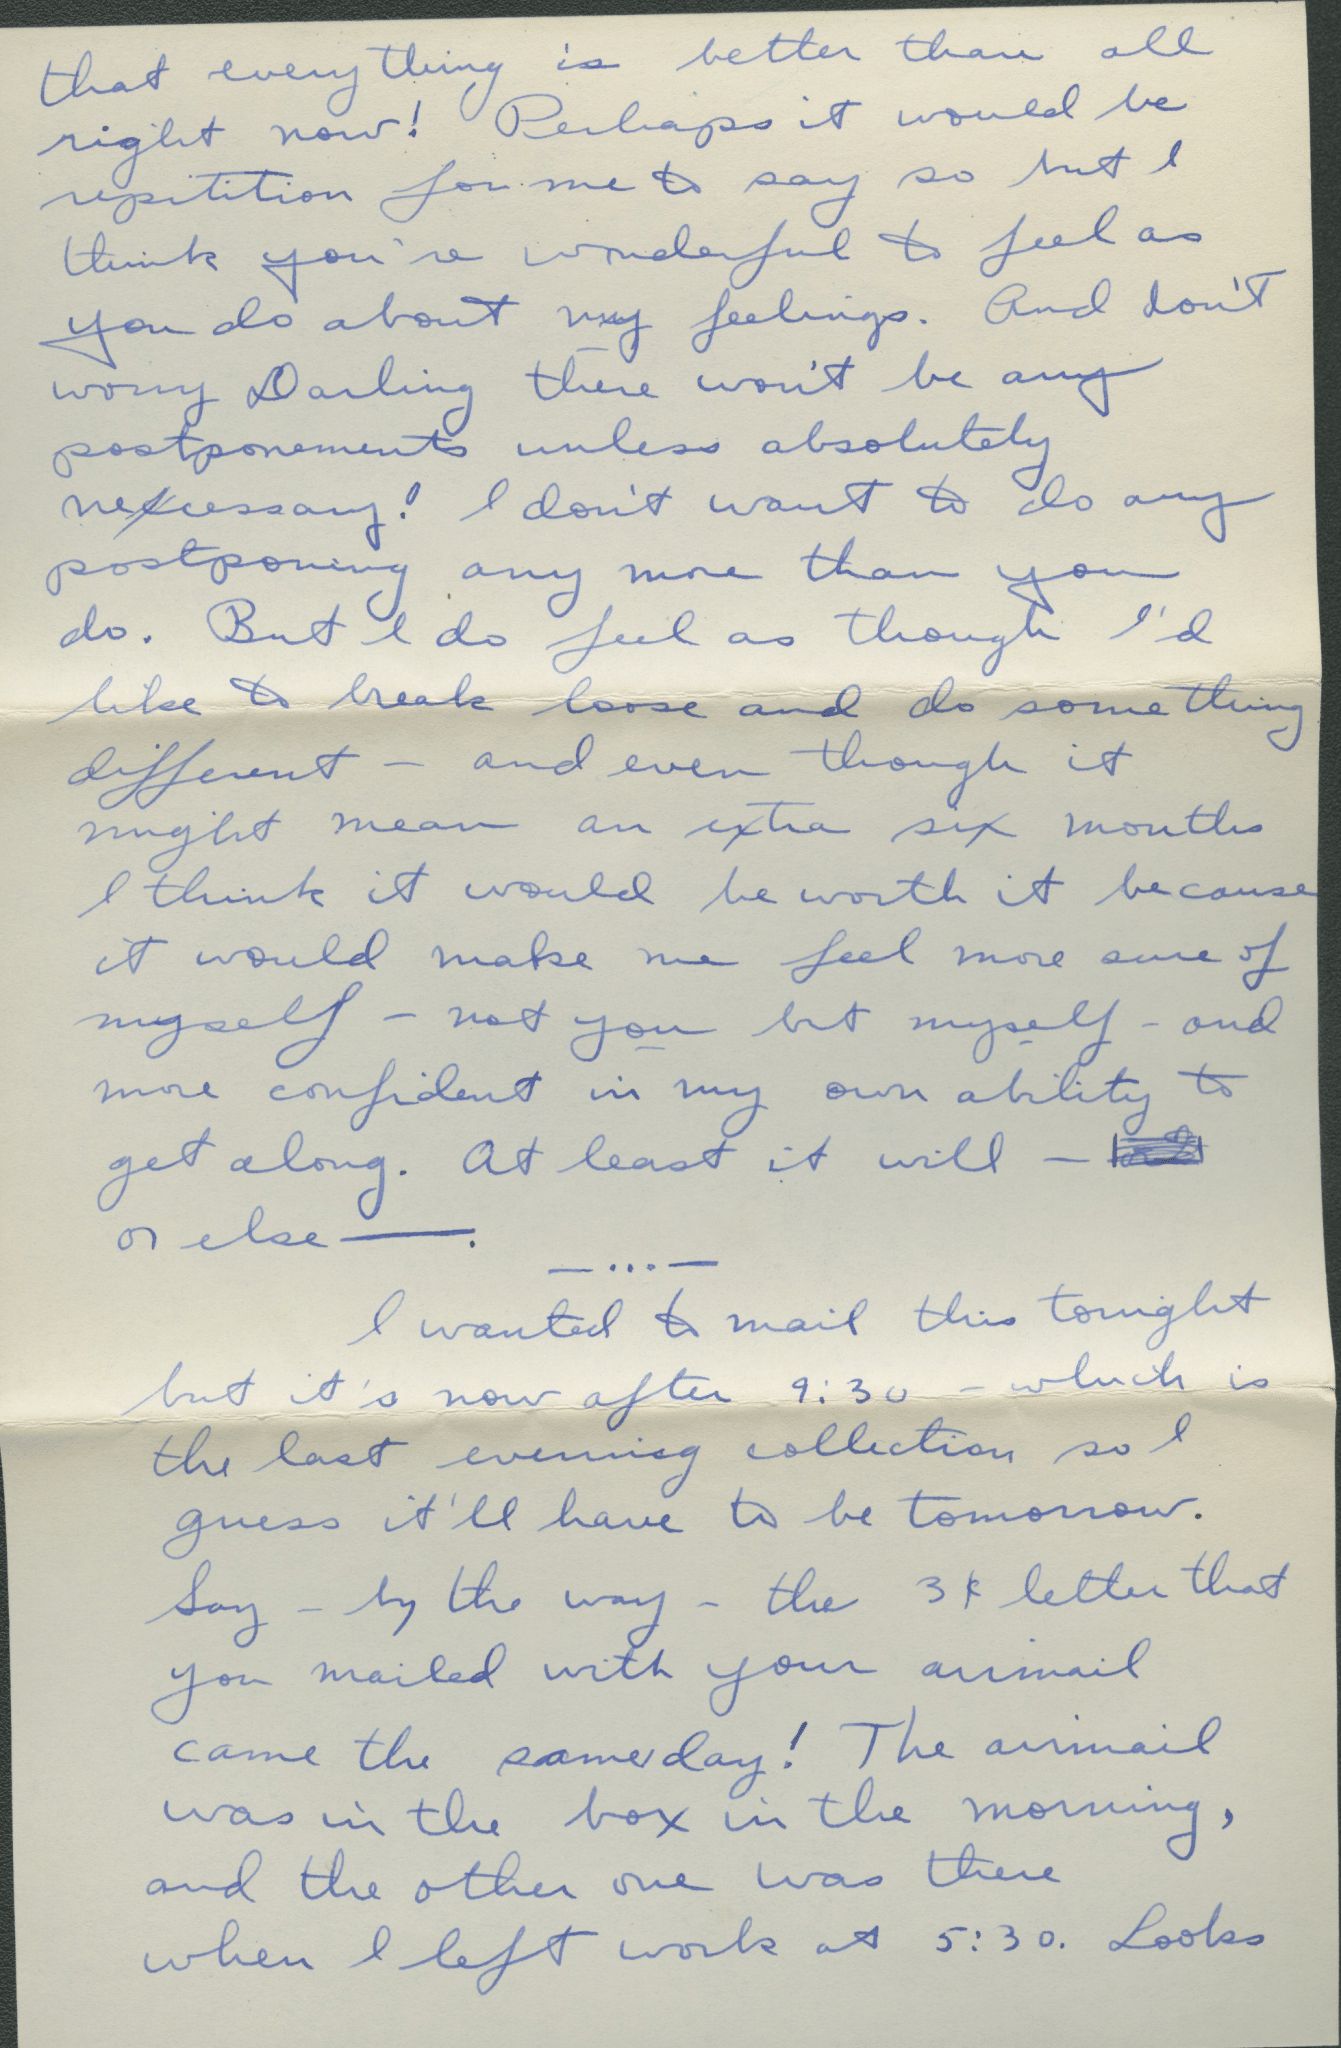 that everything is better than all
right now! Perhaps it would be
repitition for me to say so but I
think you're wonderful to feel as
you do about my feelings. And don't
worry Darling there won't be any
postponements unless absolutely
necessary! I don't want to do any
postponing any more than you
do. But I do feel as though I'd
like to break loose and do something
different – and even though it
might mean an extra six months
I think it would be worth it because
it would make me feel more sure of
myself – not you but myself – and
more confident in my own ability to
get along. At least it will –
or else —.
— ... —
I wanted to mail this tonight
but it's now after 9:30 – which is
the last evening collection so I
guess it'll have to be tomorrow.
Say – by the way – the 3¢ letter that
you mailed with your airmail
came the same day! The airmail
was in the box in the morning,
and the other one was there
when I left work at 5:30. Looks